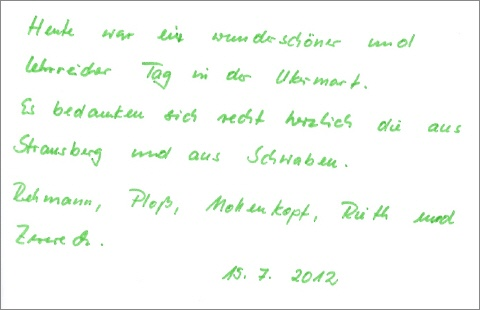 Heute war ein wunderschöner und
lehrreicher Tag in der Ukermark.
Es bedanken sich recht herzlich die aus
Strausberg und aus Schwaben.
Rehmann, Ploß, Mollenkopf, Rieth und
15.7.2012